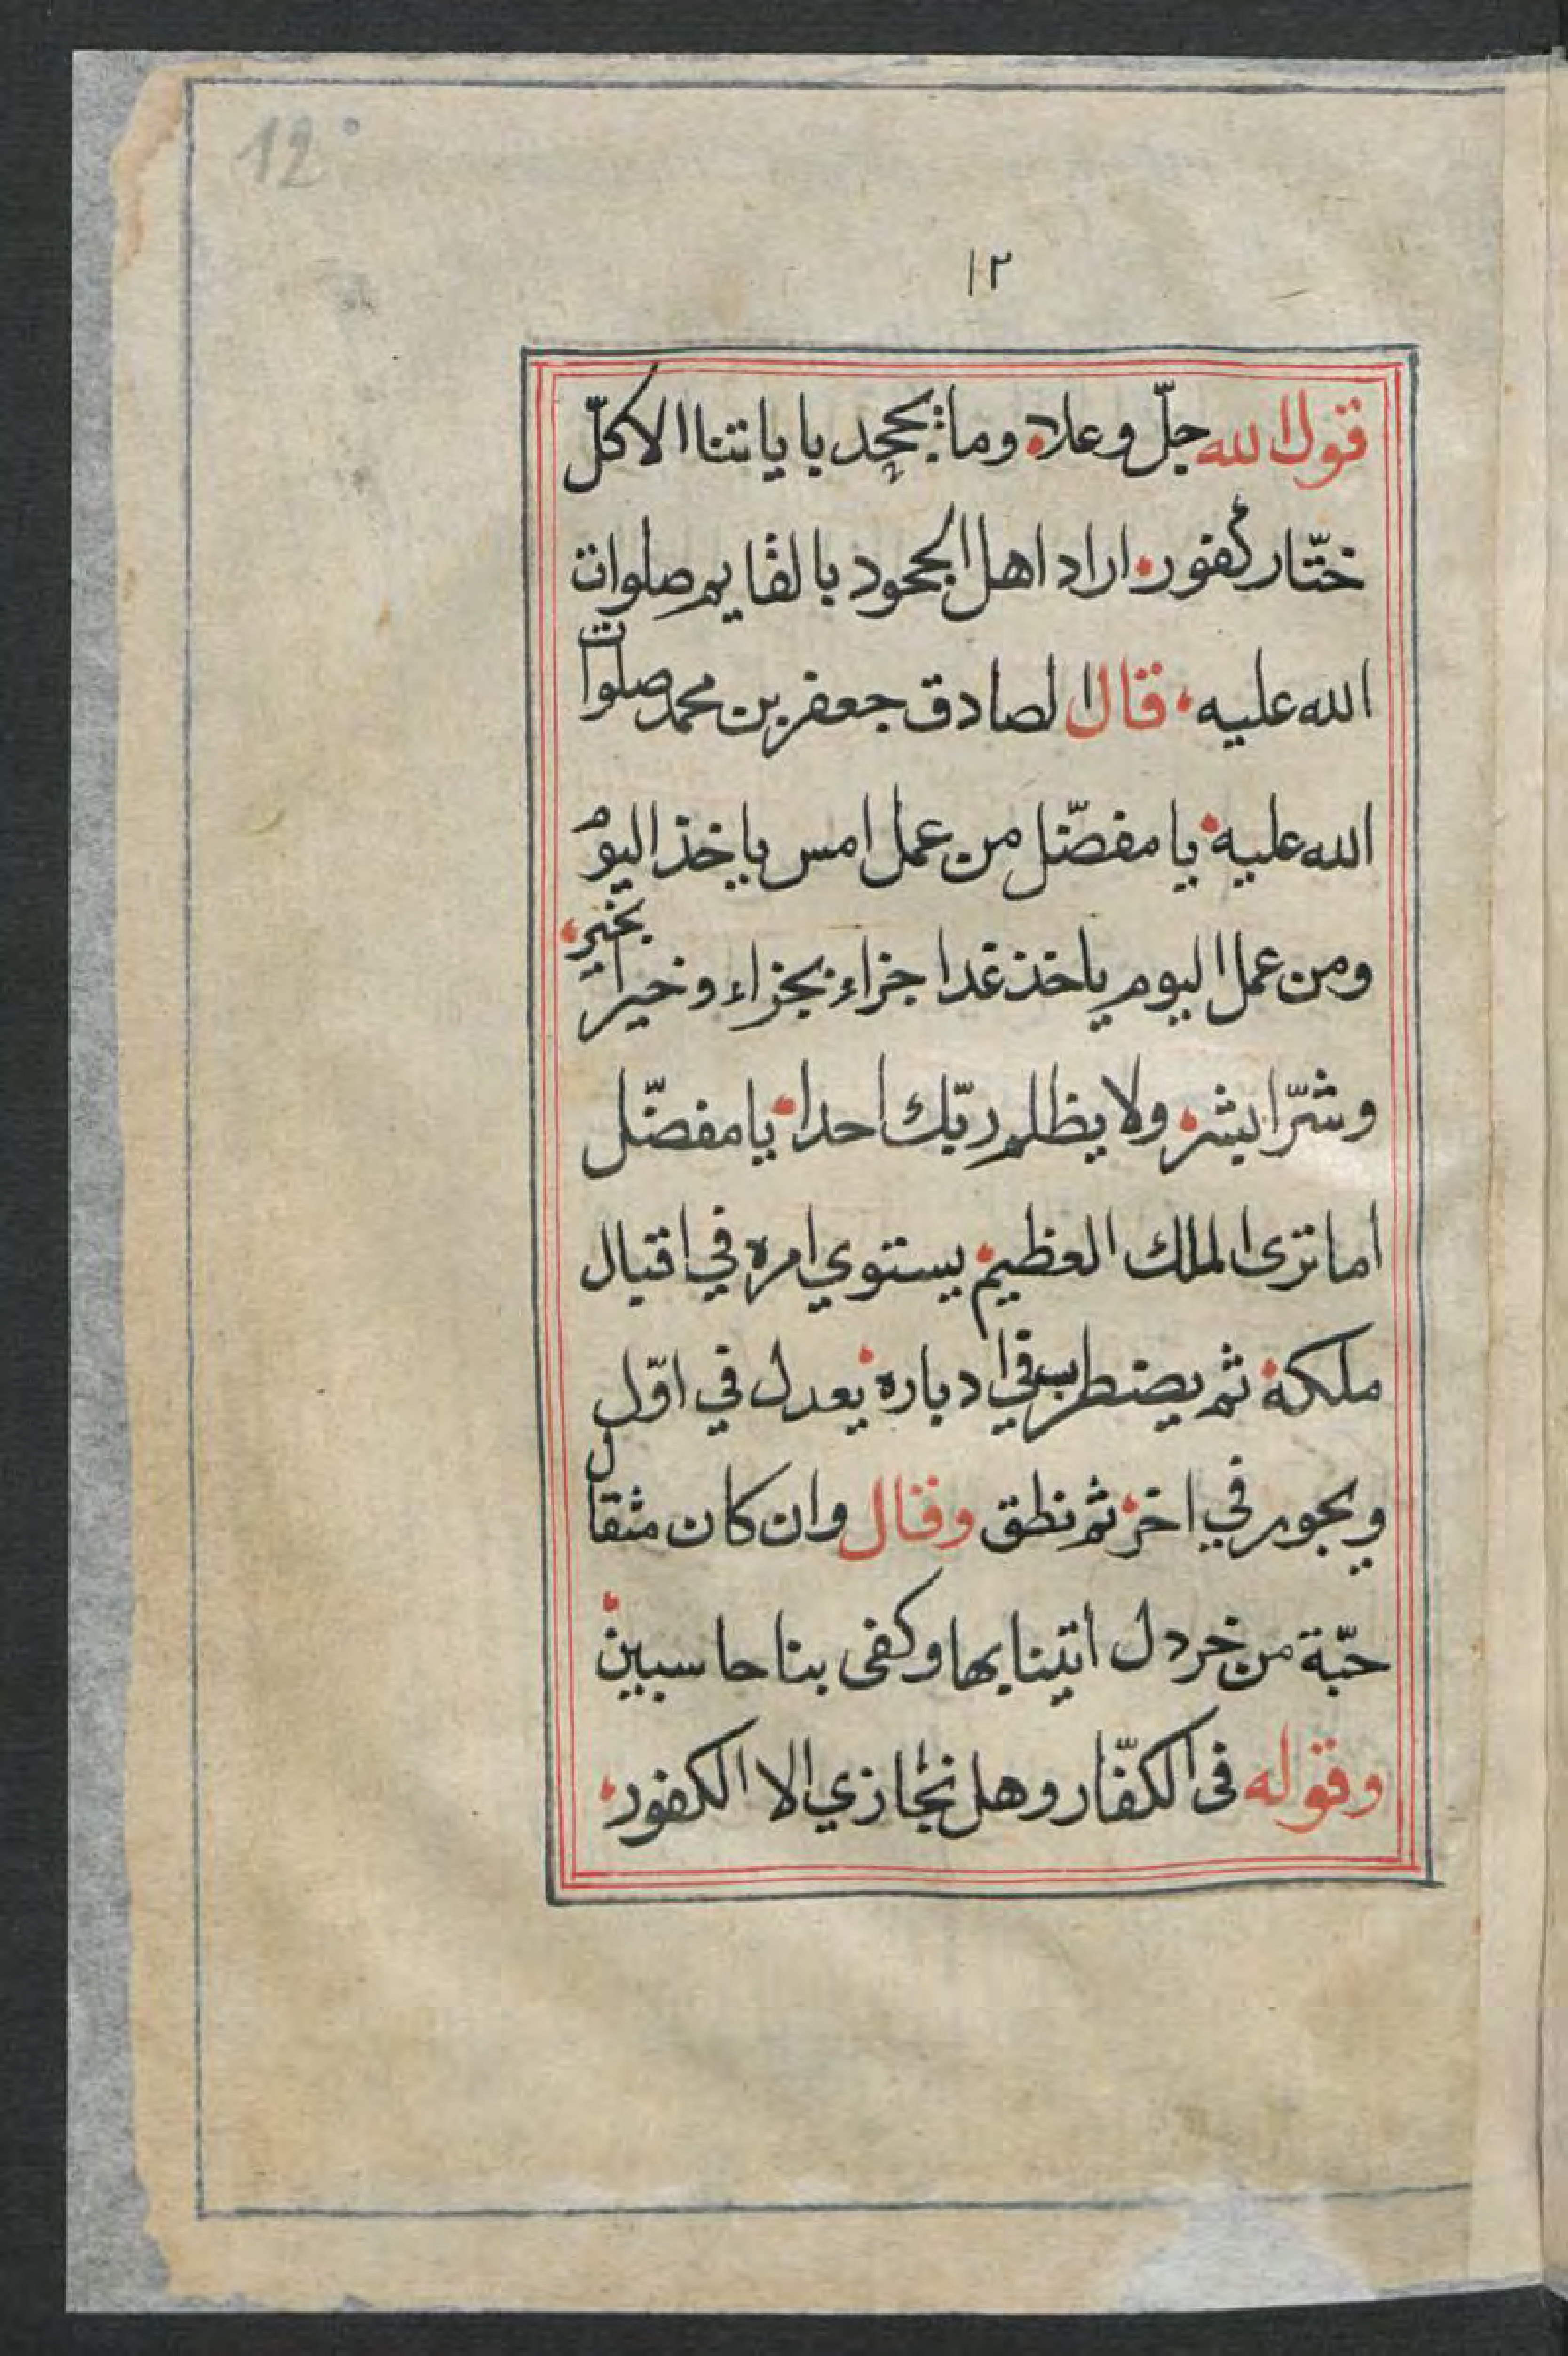 12
١٢
قول الله جلّ وعلا وما يجحد باياتنا الا كلّ
ختّار كفور اراد اهل الجحود بالقايم صلوات
الله عليه قال الصادق جعفر بن محمد صلوات
الله عليه يا مفضّل من عمل امس ياخذ اليوم
ومن عمل اليوم ياخذ غدا جزاء بجزاء وخيرا بخير
وشرّا بشر ولا يظلم ربّك احدا يا مفضّل
اما ترى الملك العظيم يستوي امره في اقبال
ملكه ثم يضطرب في ادباره يعدل في اوّل
ويجور في اخر ثم نطق وقال وان كان مثقال
حبّة من خردل اتينا بها وكفى بنا حاسبين
وقوله في الكفّار وهل نجازي الا الكفور